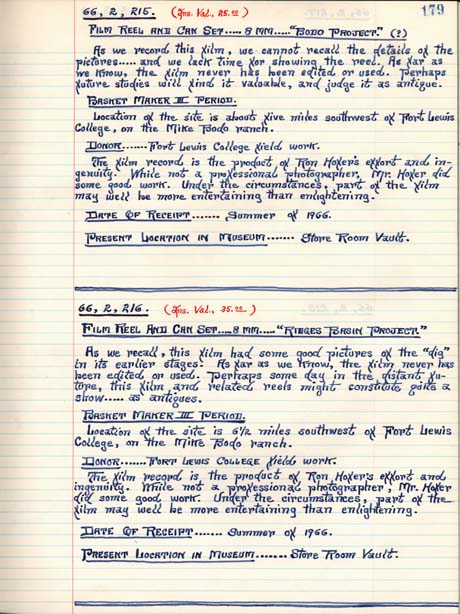 179
66, 2, 215. (Ins. Val., 25.00)
Film Reel And Can Set.... 8 mm....."Bodo Project." (?)
As we record this film, we cannot recall the details of the
pictures..... and we lack time for showing the reel. As far as
we know, the film never has been edited or used. Perhaps
future studies will find it valuable, and judge it as antique.
Basket Maker III Period.
Location of the site is about five miles southwest of Fort Lewis
College, on the Mike Bodo ranch.
Donor......Fort Lewis College field work.
The film record is the product of Ron Hofer's effort and in-
genuity. While not a professional photographer, Mr. Hofer did
some good work. Under the circumstances, part of the film
may well be more entertaining than enlightening.
Date Of Receipt....... Summer of 1966.
Present Location in Museum....... Store Room Vault.
66, 2, 216. (Ins. Val., 35.00)
Film Reel And Can Set.....8 mm....."Ridges Basin Project."
As we recall, this film had some good pictures of the "dig"
in its earlier stages. As far as we know, the film never has
been edited or used. Perhaps some day in the distant fu-
ture, this film and related reels might constitute quite a
show..... as antiques.
Basket Maker III Period.
Location of the site is 6½ miles southwest of Fort Lewis
College, on the Mike Bodo ranch.
Donor.......Fort Lewis College field work.
The film record is the product of Ron Hofer's effort and
ingenuity. While not a professional photographer, Mr. Hofer
did some good work. Under the circumstances, part of the
film may well be more entertaining than enlightening.
Date Of Receipt...... Summer of 1966.
Present Location in Museum....... Store Room Vault.